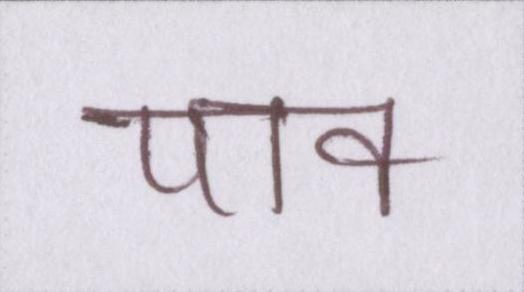 पाव